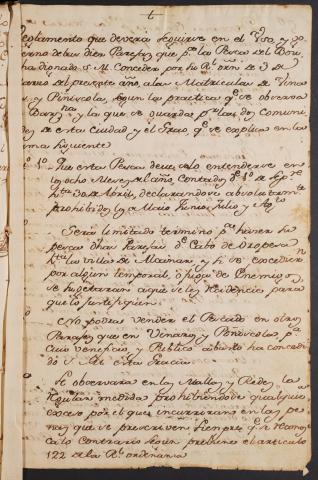 Reglamento que deverá seguirse en el Uso, y Go-
vierno de las diez Parejas, que pa. la Pesca del Bou,
ha dignado S. M. Conceder por su Rl. orn. de 3 de
del presente año, a las Matriculas de Vina-
y Peñiscola, segun la practica qe. se observa
y la que se guarda pr. las dos Comuni-
de esta Ciudad, y el Grao, qe. se explica en la
ma siguiente
1o. Que esta Pesca deve solo entenderse en
los ocho Meses del año contados de 1o. de Sepre.
hta. 30 de Abril, declarandose absolutamte.
prohibidos los Maio Junio, Julio y Agto.
Será limitado termino pa. hacer su
pesca dhas. Parejas de. Cabo de Oropesa
hta. la villa de Alcanar, y si se excedieren
por algun temporal, ó fuga de Enemigos
se sugetaran a que se les Residencie para
que lo justifiquen
No podrán vender el Pescado en otros
Parages, que en Vinaroz y Peñiscola, pa.
cuio veneficio, y Publico abasto ha concedi-
do S. M. esta Gracia
Se observara en las Mallas y Redes la
regular medida prohibiendose qualquier
exceso por el que incurriran en las pe-
nas que se prescriven siempre qe. se
lo Contrario segun previene el articulo
122 de la Rl. ordenanza